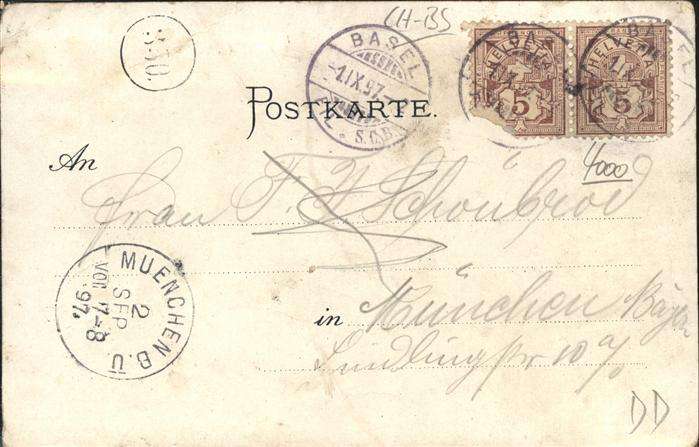 CH-BS
BASEL
-1.IX.97.
S.C.B.
HELVETIA
5
HELVETIA
5
POSTKARTE.
4000
An
Frau F. Schönbrod
MUENCHEN B.Ü
2
SEP
VOR. 7-8
97.
in München
10
DD